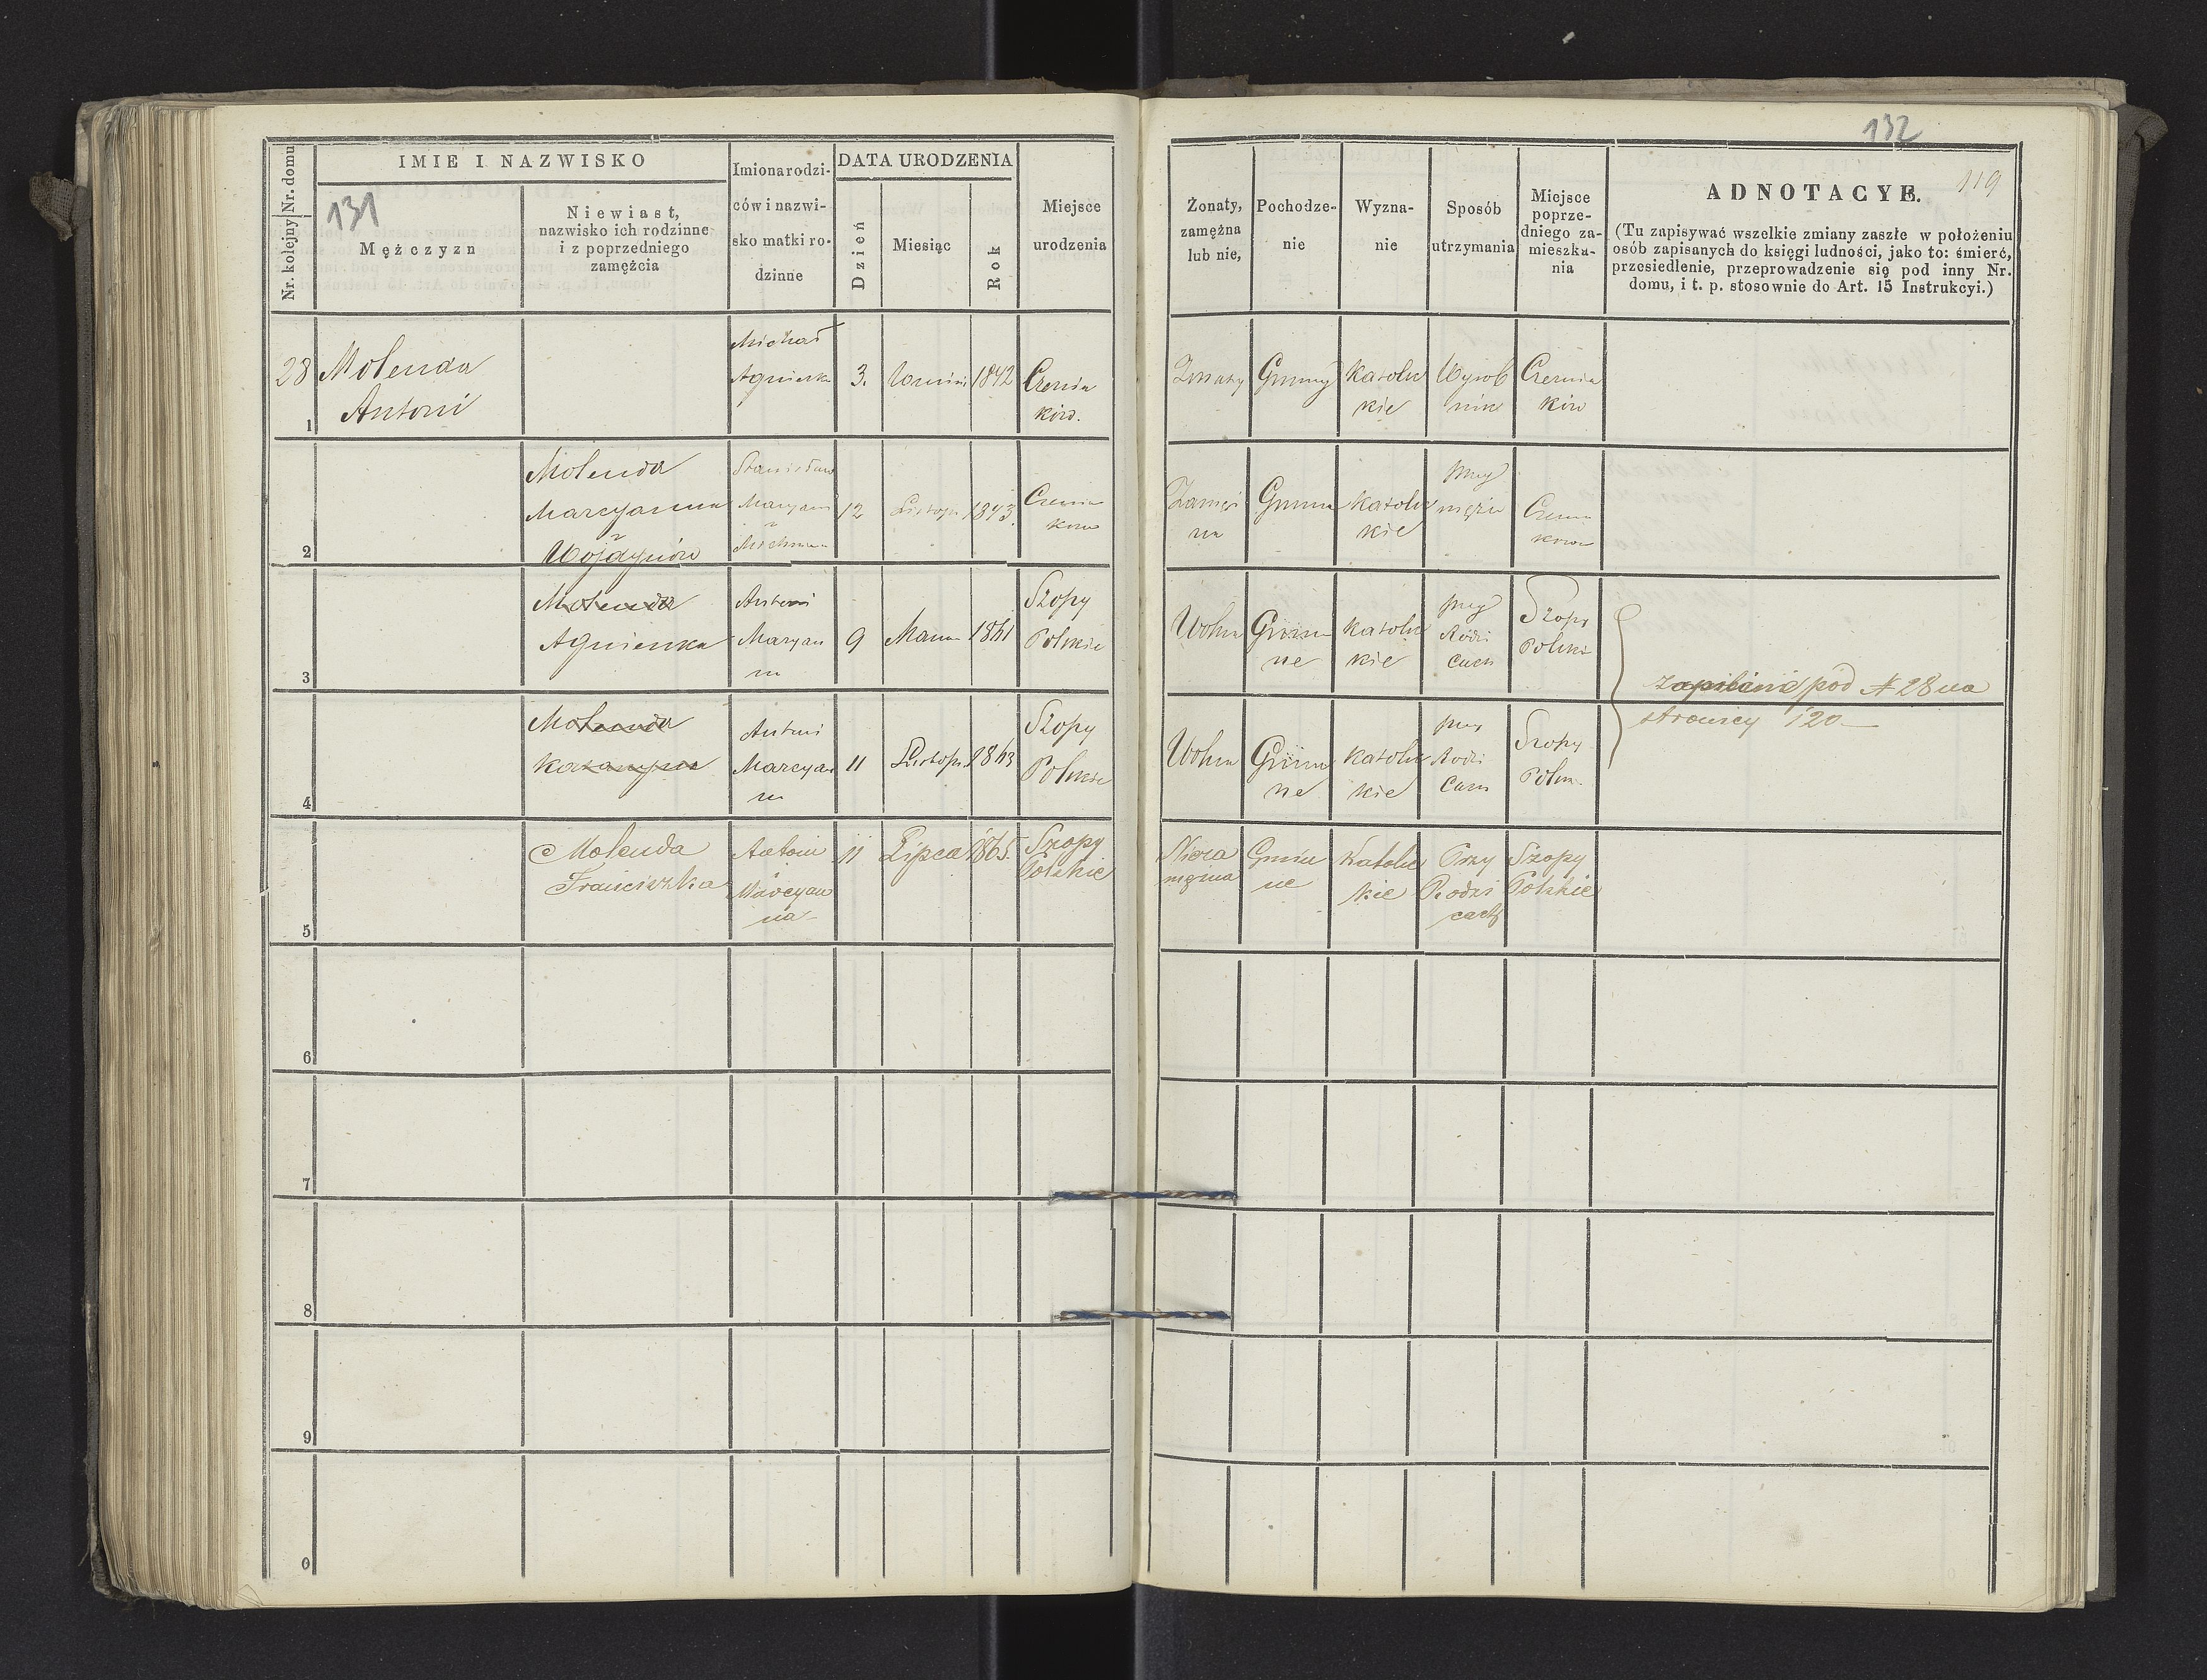 132
119
131
Nr. kolejny Nr. domu
IMIE I NAZWISKO
Mężczyzn
Niewiast,
nazwisko ich rodzinne
i z poprzedniego
zamężcia
Imiona rodzi-
ców i nazwi-
sko matki ro-
dzinne
DATA URODZENIA
Dzień
Miesiąc
Rok
Miejsce
urodzenia
Żonaty,
zamężna
lub nie,
Pochodze-
nie
Wyzna-
nie
Sposób
utrzymania
Miejsce
poprze-
dniego za-
mieszka-
nia
ADNOTACYE.
(Tu zapisywać wszelkie zmiany zaszłe w położeniu
osób zapisanych do księgi ludności, jako to: śmierć,
przesiedlenie, przeprowadzenie się pod inny Nr.
domu, i t. p. stosownie do Art. 15 Instrukcyi.)
28
1
Molenda
Antoni
Michał
Agnieszka
3.
1842
Czernia
ków.
Żonaty
Gminny
Katolic
kie
Wyrob
nik
Czernia
ków
2
Molenda
Marcyanna
z
Wojdynów
Stanisław
Maryann
z
12
Listop
1843.
Czernia
kow
Zamęż
na
Gminn
Katolic
kie
przy
mężu
Czernia
kow
3
Molenda
Agnieszka
Antoni
Maryan
na
9
Marca
1861
Szopy
Polskie
Wolna
Gmin
ne
Katolic
kie
przy
Rodzi
cach
Szopy
Polskie
4
Molenda
Katarzyna
Antoni
Marcyan
na
11
Listop.
1863
Szopy
Polskie
Wolna
Gmin
ne
Katolic
kie
przy
Rodzi
cach
Szopy
Polsk.
zapisane pod № 28 na
stronicy 120
5
Molenda
Franciszka
Antoni
Marcyan
na
11
Lipca
1865.
Szopy
Polskie
Nieza
mężna
Gmin
ne
Katolic
kie
Przy
Rodzi
cach
Szopy
Polskie
6
7
8
9
0